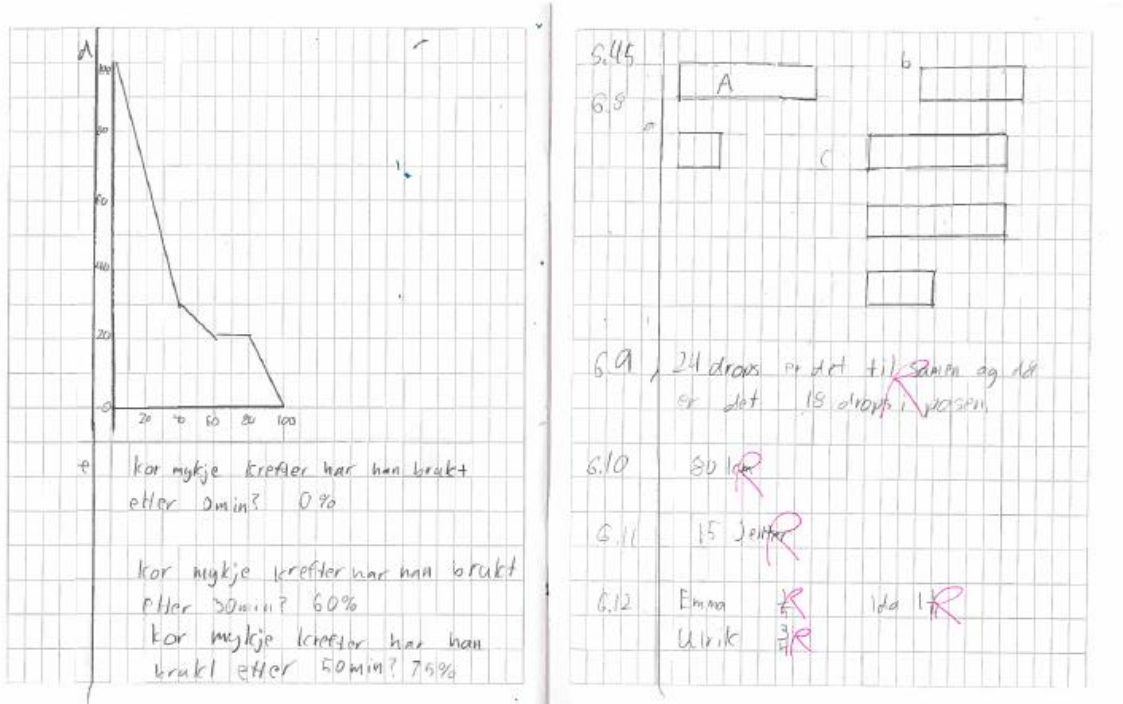 d
100
80
60
40
20
0
20 40 60 80 100
e Kor mykje krefter har han brukt
etter 0min? 0%
kor mykje krefter har han brukt
etter 30min? 60%
kor mykje krefter har han
brukt etter 50min? 75%
6.45
A
b
6.8
a
C
6.9 24 drops er det til samen og då
er det 18 drops i posen
6.10 80 km R
6.11 15 Jenter R
6.12 Emma R Ida R
Ulrik 3/4 R